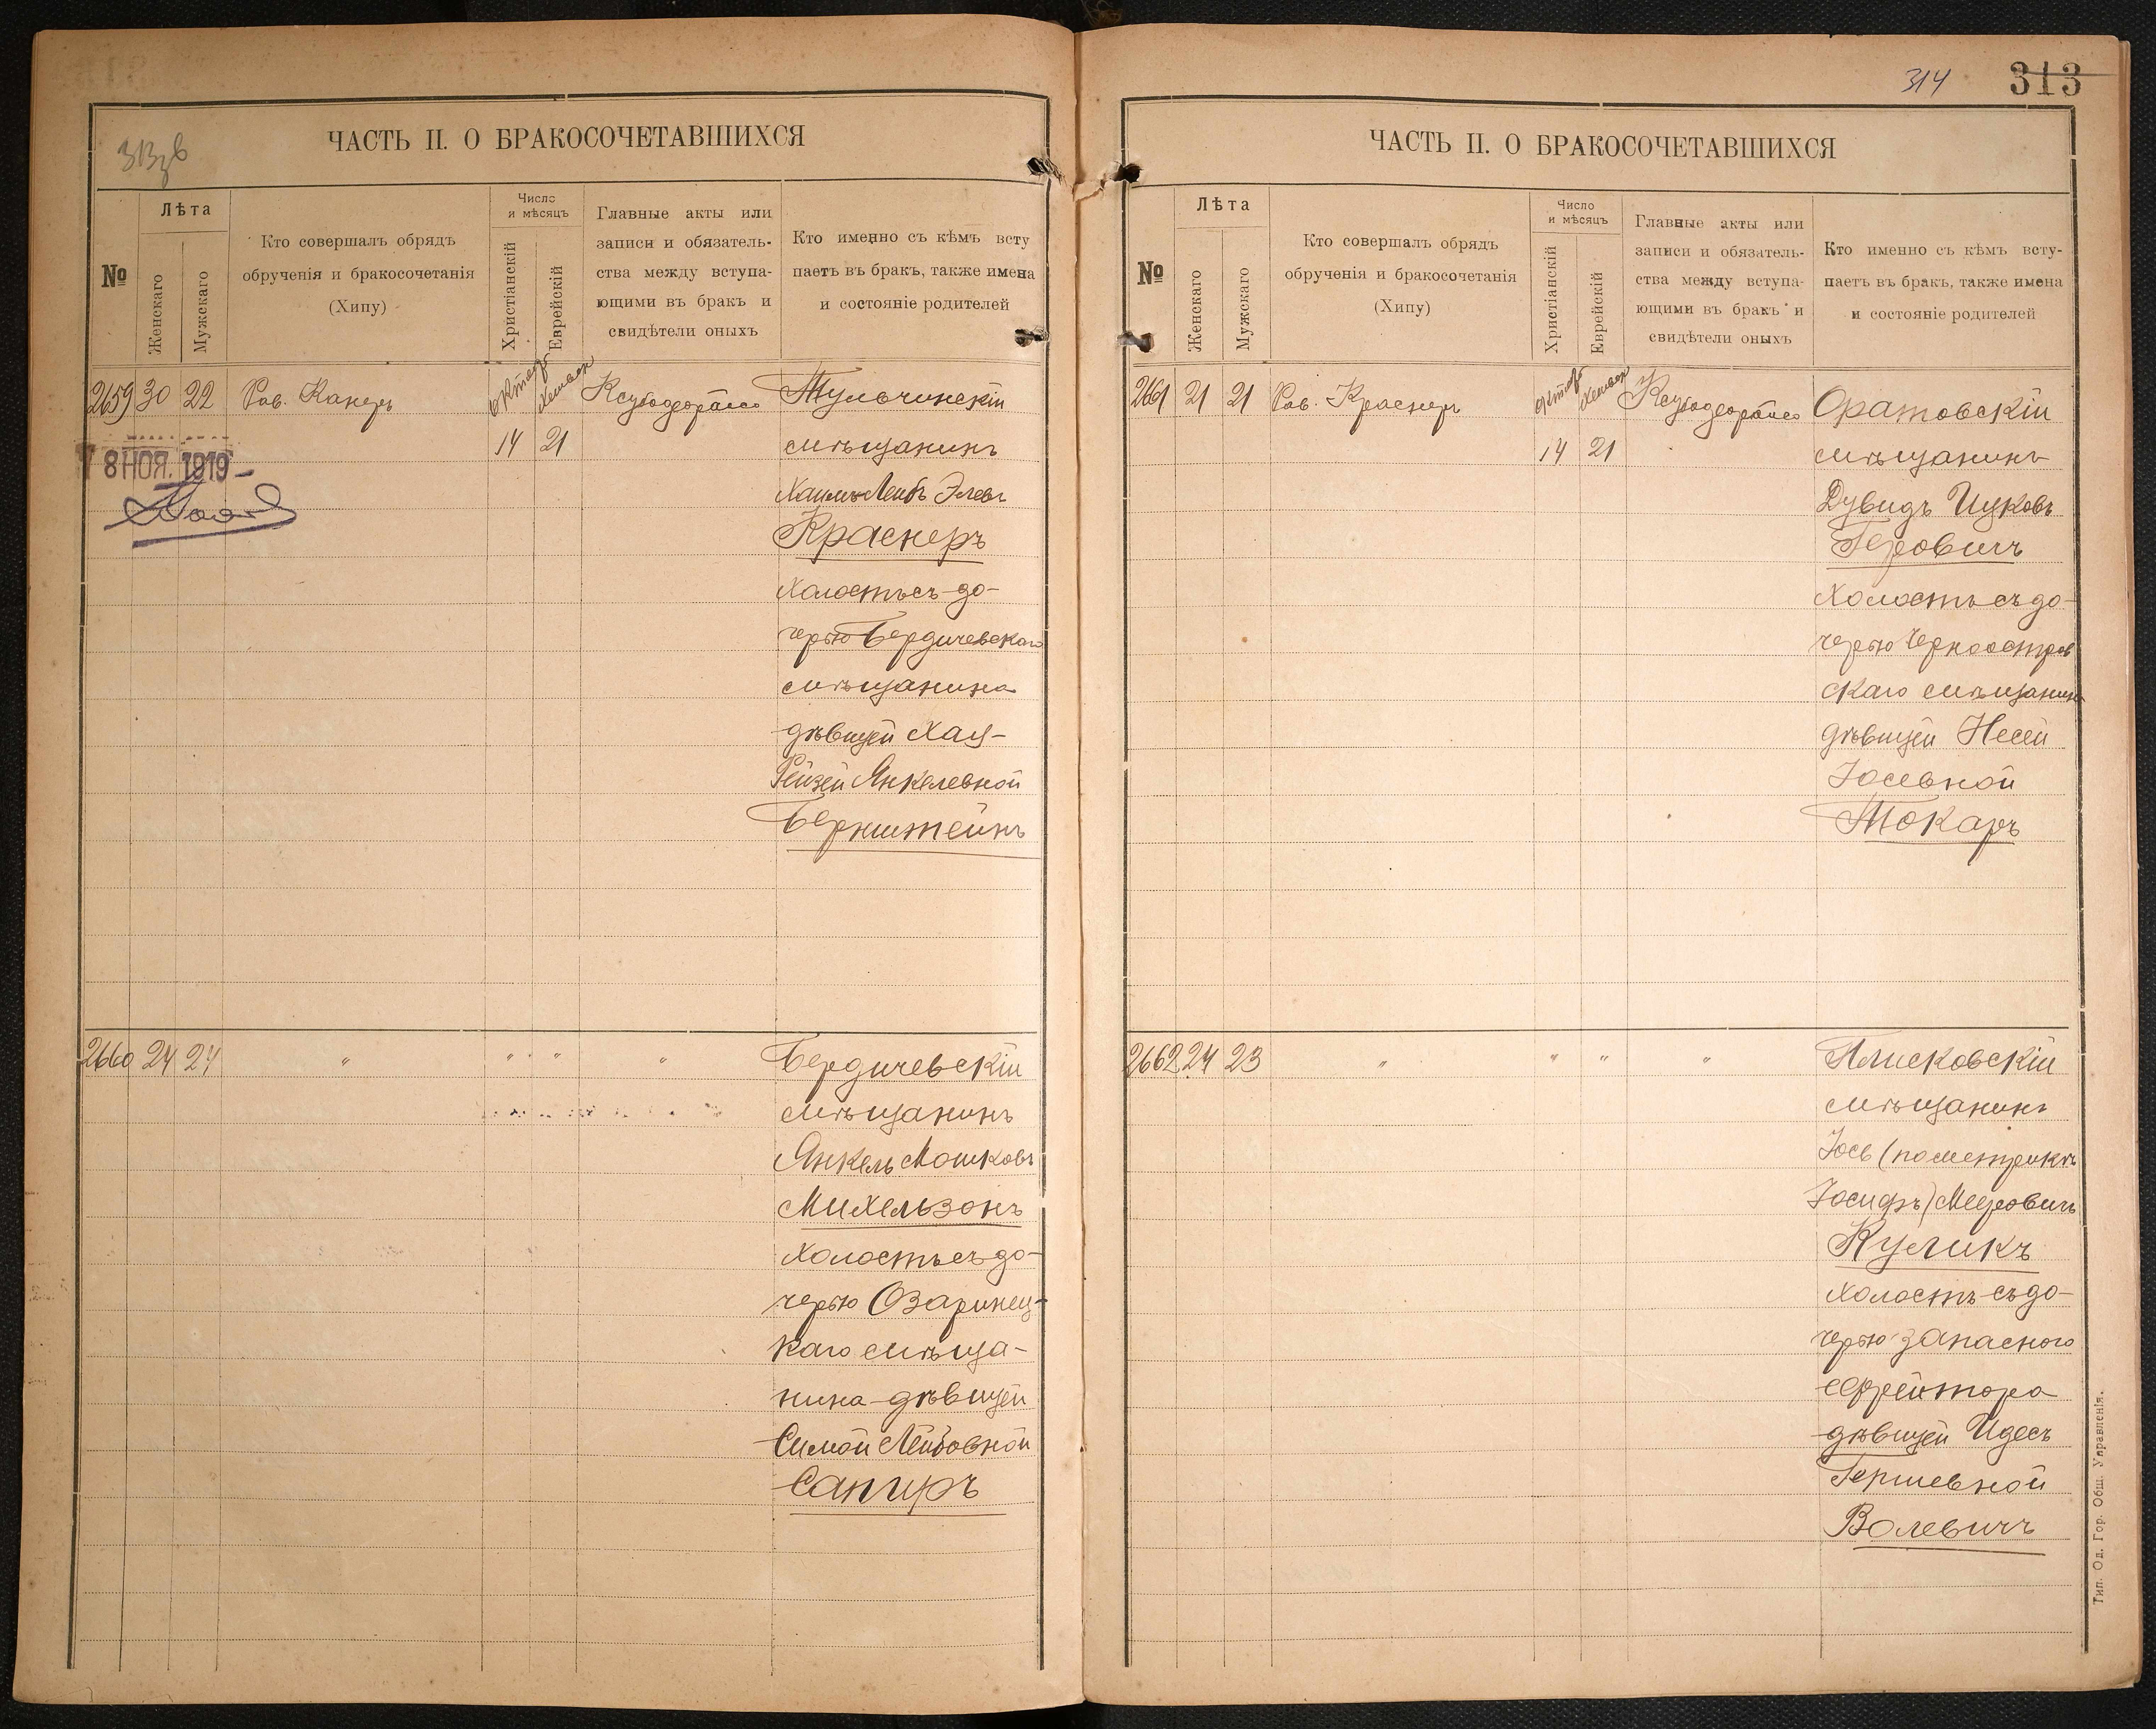 313зв
ЧАСТЬ II. О БРАКОСОЧЕТАВШИХСЯ
№
Лѣта
Женскаго
Мужскаго
Кто совершалъ обрядъ
обрученія и бракосочетанія
(Хипу)
Число
и мѣсяцъ
Христіанскій
Еврейскій
Главные акты или
записи и обязатель-
ства между вступа-
ющими въ бракъ и
свидѣтели оныхъ
Кто именно съ кѣмъ всту
паетъ въ бракъ, также имена
и состояніе родителей
2659 30 22 Рав. Канеръ
Тульчинскій
14 21 мѣщанинъ
8 НОЯ. 1919
Хаимъ Лейбъ Элевъ
Краснеръ
холостъ съ до-
черью Бердичевскаго
мѣщанина
дѣвицей Хая-
Рейзей Янкелевной
Бернштейнъ
2660 24 27 " " " " Бердичевскій
мѣщанинъ
Янкель Мошковъ
Михельзонъ
холостъ съ до-
черью Озаринец-
каго мѣща-
нина дѣвицей
Симой Лейбовной
Сапиръ
314 313
ЧАСТЬ II. О БРАКОСОЧЕТАВШИХСЯ
№
Лѣта
Женскаго
Мужскаго
Кто совершалъ обрядъ
обрученія и бракосочетанія
(Хипу)
Число
и мѣсяцъ
Христіанскій
Еврейскій
Главные акты или
записи и обязатель-
ства между вступа-
ющими въ бракъ и
свидѣтели оныхъ
Кто именно съ кѣмъ всту-
паетъ въ бракъ, также имена
и состояніе родителей
2661 21 21 Рав. Краснеръ
Оратовскій
14 21 мѣщанинъ
Дувидъ Ицковъ
Геровичъ
холостъ съ до-
черью Черноостров
скаго мѣщанина
дѣвицей Несей
Іосевной
Токаръ
2662 24 23 " " " " Плисковскій
мѣщанинъ
Іось (по метрикѣ
Іосифъ) Мееровичъ
Куликъ
холостъ съ до-
черью запасного
ефрейтора
дѣвицей Идесъ
Гершевной
Волевичъ
Тип. Од. Гор. Общ. Управленія.